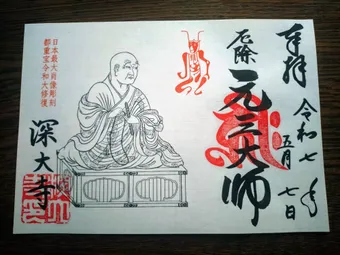 奉拝
令和七年
五月七日
厄除
元三大師
日本最大肖像彫刻
都重宝令和大修復
深大寺